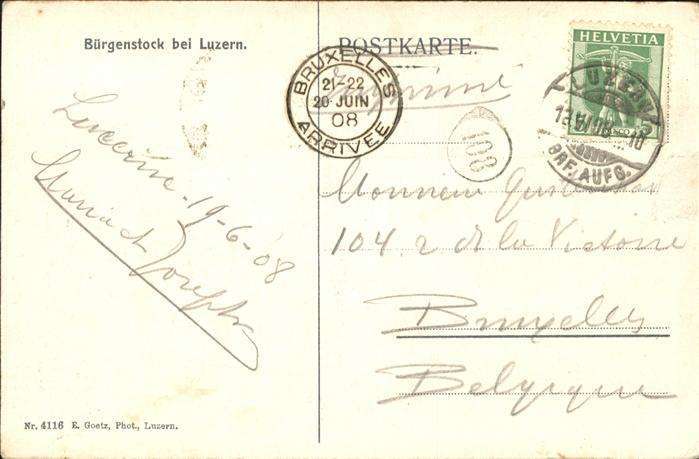 Bürgenstock bei Luzern.
POSTKARTE.
Imprimé
HELVETIA
LUZERN
BRF. AUFG.
BRUXELLES
21-22
20 JUIN
08
ARRIVÉE
108
Lucerne - 19-6-08
Maria et
Joseph
Monsieur
104 r de la Victoire
Bruxelles
Belgique
Nr. 4116 E. Goetz, Phot., Luzern.